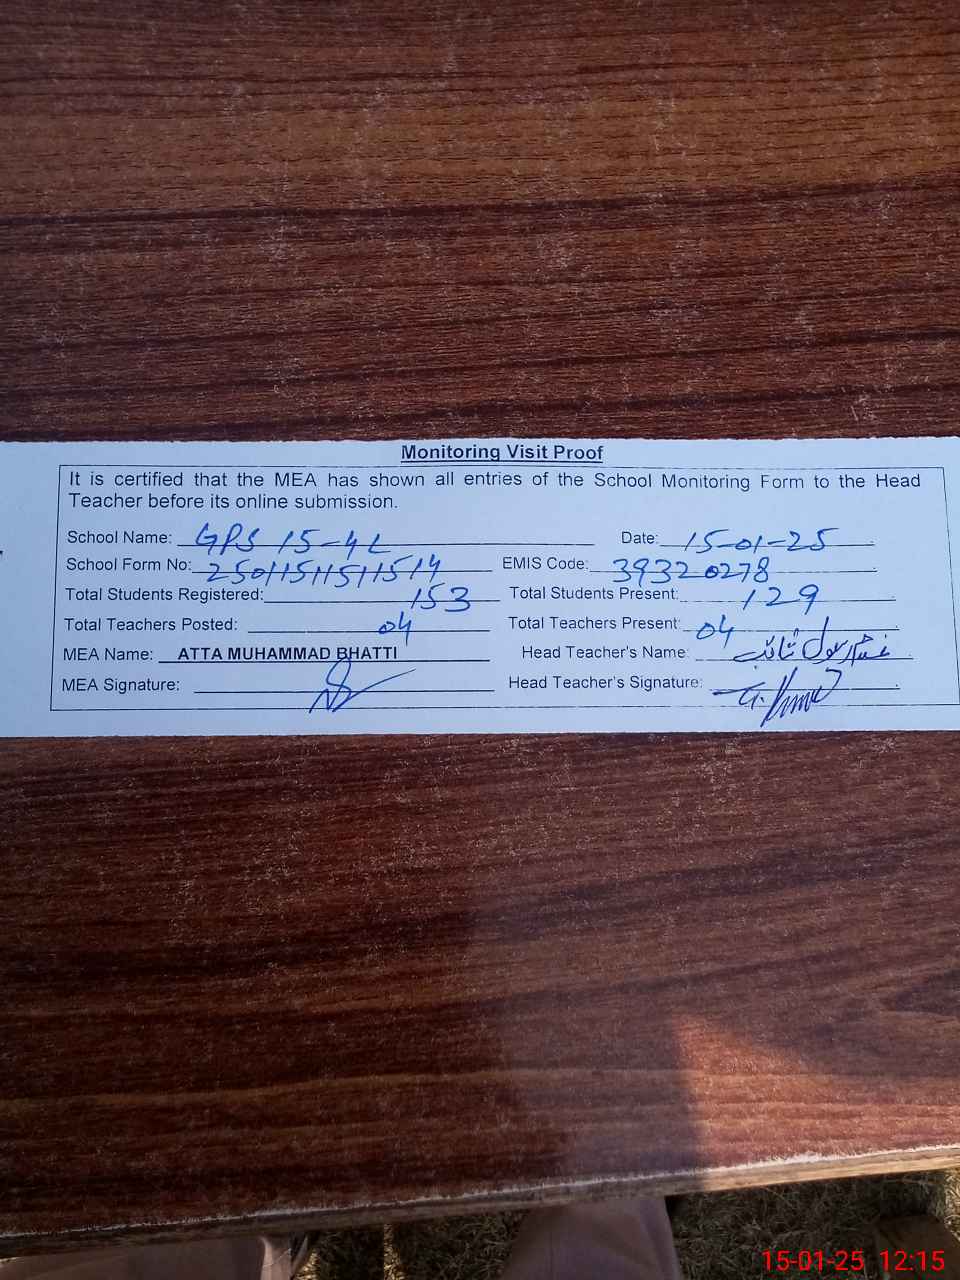 Monitoring Visit Proof
It is certified that the MEA has shown all entries of the School Monitoring Form to the Head
Teacher before its online submission.
School Name: GPS 15-4L Date: 15-01-25
School Form No: EMIS Code: 39320278
Total Students Registered: 153 Total Students Present: 129
Total Teachers Posted: 04 Total Teachers Present: 04
MEA Name: ATTA MUHAMMAD BHATTI Head Teacher's Name:
MEA Signature: Head Teacher's Signature:
15-01-25 12:15